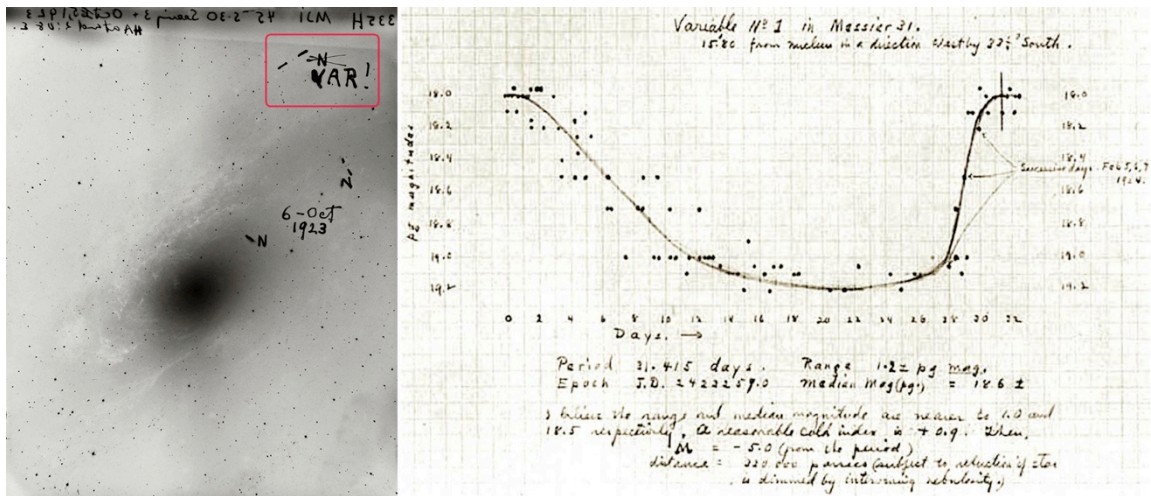 N
VAR!
N
6-Oct
1923
N
Variable No 1 in Messier 31.
from nucleus in a direction South.
pg magnitudes
18.0
18.2
18.4
18.6
18.8
19.0
19.2
18.0
18.2
18.4
18.6
18.8
19.0
19.2
Successive days - Feb 5, 6, 7
1924.
0 2 4 6 8 10 12 14 16 18 20 22 24 26 28 30 32
Days. →
Period 31.415 days. Range 1.2± pg mag.
Epoch J.D. Median Mag (pg.) = 18.6 ±
I believe the range and median magnitude are nearer to 1.0 and
18.5 respectively. A reasonable color index is +0.9. Then,
M = -5.0 (from the period)
distance = parsecs (subject to reduction if star
is dimmed by intervening nebulosity.)